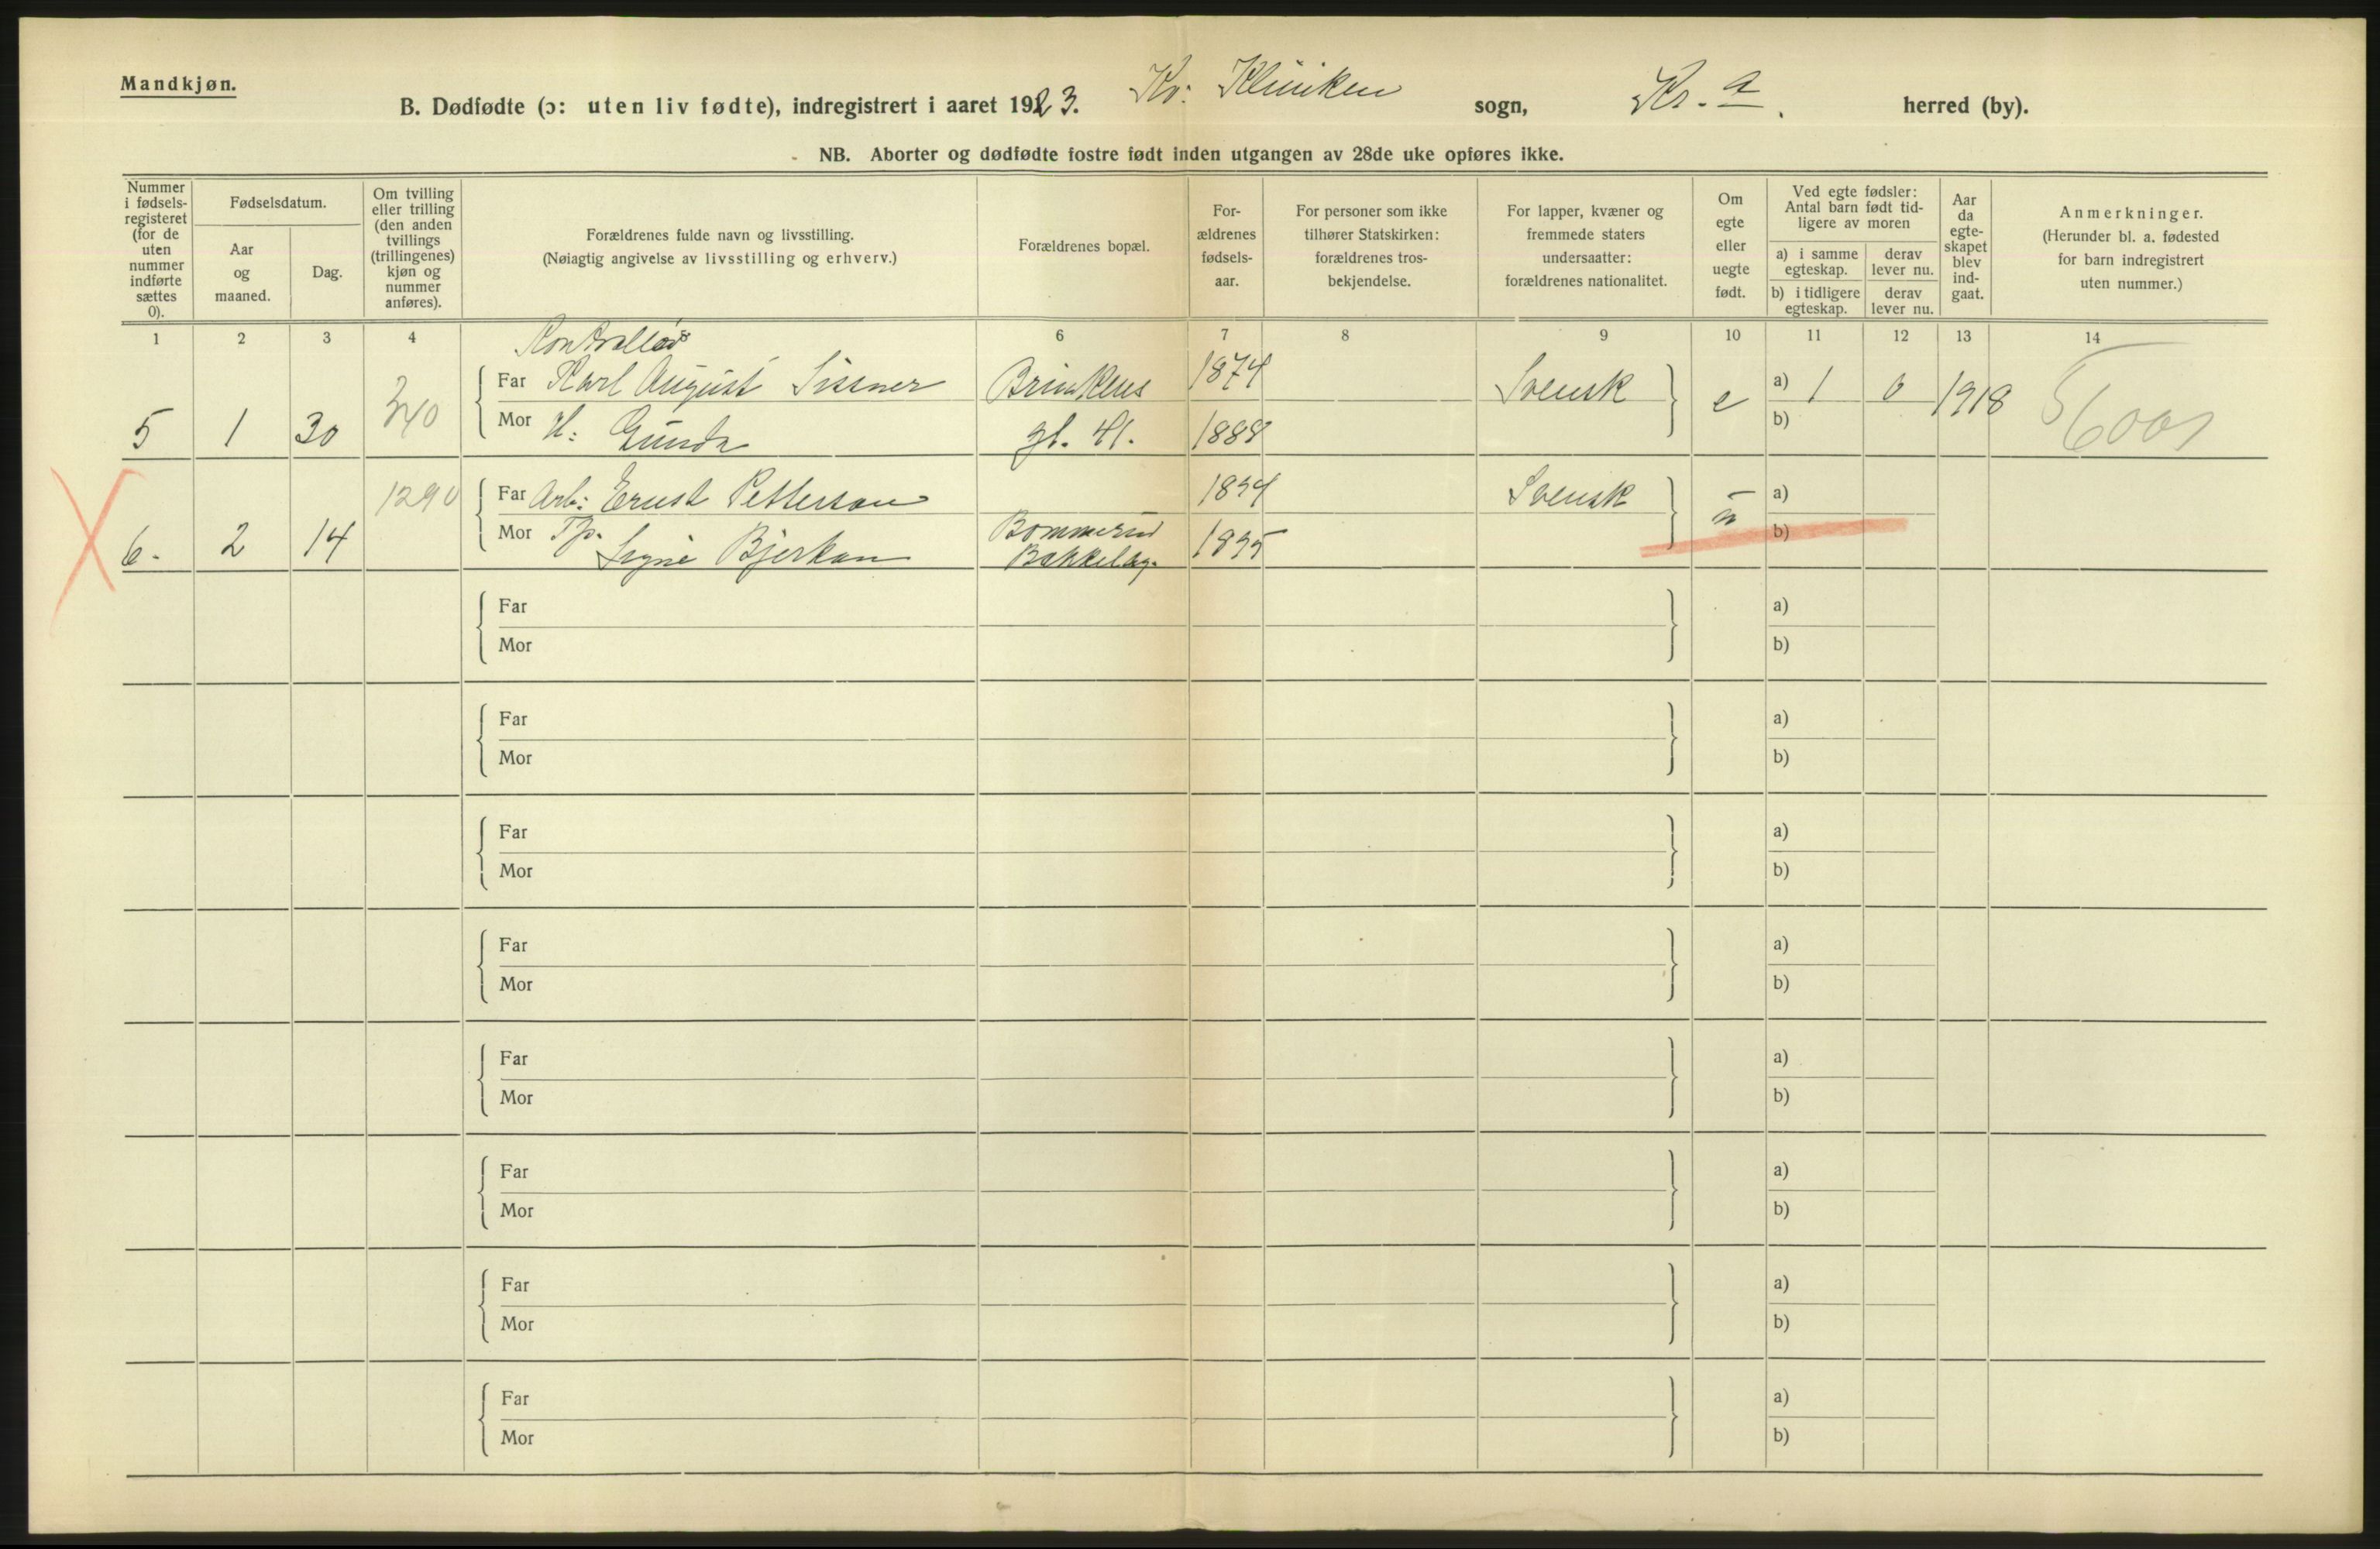 Mandkjøn.
B. Dødfødte (ɔ: uten liv fødte), indregistrert i aaret 1923. Kv. Kliniken sogn, Kr.a. herred (by).
NB. Aborter og dødfødte fostre født inden utgangen av 28de uke opføres ikke.
Nummer i fødsels-registeret (for de uten nummer indførte sættes 0).
Fødselsdatum.
Aar og maaned.
Dag.
Om tvilling eller trilling (den anden tvillings (trillingenes) kjøn og nummer anføres).
Forældrenes fulde navn og livsstilling.
(Nøiagtig angivelse av livsstilling og erhverv.)
Forældrenes bopæl.
For-ældrenes fødsels-aar.
For personer som ikke tilhører Statskirken: forældrenes tros-bekjendelse.
For lapper, kvæner og fremmede staters undersaatter: forældrenes nationalitet.
Om egte eller uegte født.
Ved egte fødsler: Antal barn født tid-ligere av moren
a) i samme egteskap.
derav lever nu.
b) i tidligere egteskap.
derav lever nu.
Aar da egte-skapet blev ind-gaat.
Anmerkninger.
(Herunder bl. a. fødested for barn indregistrert uten nummer.)
1 2 3 4 6 7 8 9 10 11 12 13 14
Kontrollør
Far Karl August Sissner Brinkens 1874 Svensk a) 1 0
5 1 30 340 e 1918
Mor H: Gunda gt. 41. 1888 b)
1290 Far Arb: Ernst Petterson 1894 Svensk a)
6. 2 14 u
Mor Tp. Signe Bjerkan Bommerud Bækkelag. 1895 b)
Far a)
Mor b)
Far a)
Mor b)
Far a)
Mor b)
Far a)
Mor b)
Far a)
Mor b)
Far a)
Mor b)
Far a)
Mor b)
Far a)
Mor b)